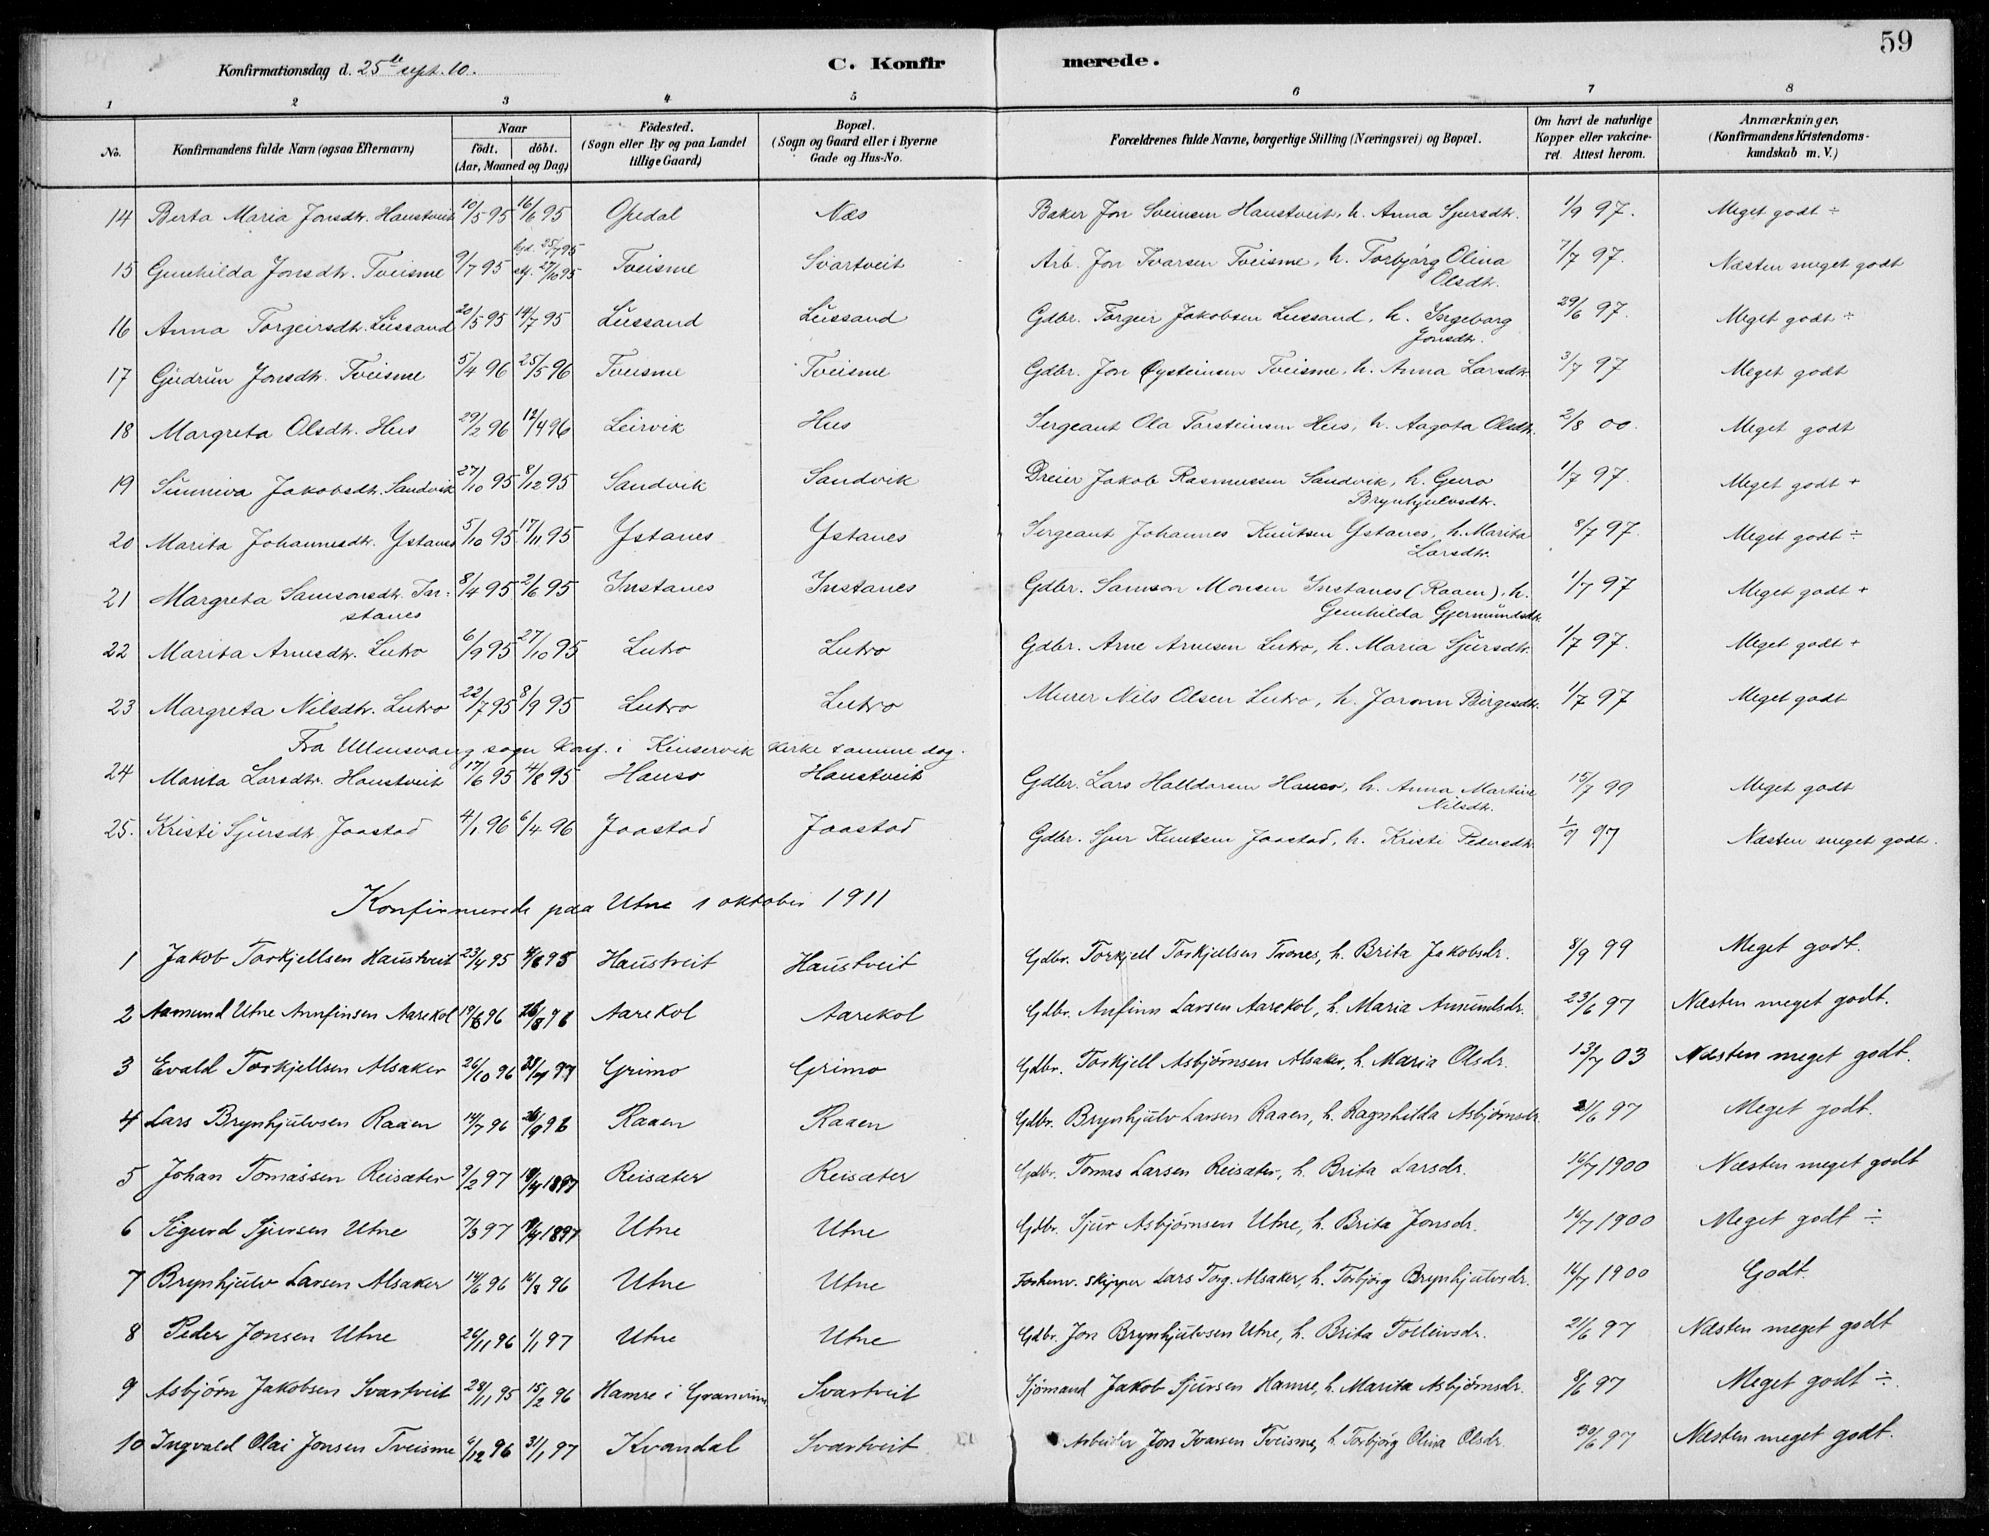 59
Konfirmationsdag d. 25de sept. 10.
C. Konfirmerede.
1 2 3 4 5 6 7 8
No.
Konfirmandens fulde Navn (ogsaa Efternavn)
Naar
födt. döbt.
(Aar, Maaned og Dag)
Födested.
(Sogn eller By og paa Landet
tillige Gaard)
Bopæl.
(Sogn og Gaard eller i Byerne
Gade og Hus-No.
Forældrenes fulde Navne, borgerlige Stilling (Næringsvei) og Bopæl.
Om havt de naturlige
Kopper eller vakcine-
ret. Attest herom.
Anmærkninger.
(Konfirmandens Kristendoms-
kundskab m. V.)
14 Berta Maria Jonsdtr. Haustveit 10/5 95 16/6 95 Opedal Næs Baker Jon Sveinsen Haustveit, h. Anna Sjursdtr. 1/9 97. Meget godt ÷
15 Gunhilda Jonsdtr. Tveisme 9/7 95 hjd. 25/7 95 stf. 27/10 95 Tveisme Svartveit Arb. Jon Ivarsen Tveisme, h. Torbjörg Olina
Olsdtr. 7/7 97. Næsten meget godt
16 Anna Torgeirsdtr. Lussand 20/5 95 14/7 95 Lussand Lussand Gdbr. Torgeir Jakobsen Lussand, h. Ingeborg
Jonsdtr. 29/6 97. Meget godt ÷
17 Gudrun Jonsdtr. Tveisme 5/4 96 25/5 96 Tveisme Tveisme Gdbr. Jon Øysteinsen Tveisme, h. Anna Larsdtr. 3/7 97 Meget godt
18 Margreta Olsdtr. Hus 29/2 96 12/4 96 Leirvik Hus Sergeant Ola Torsteinsen Hus, h. Aagota Olsdtr. 2/8 00. Meget godt
19 Sunniva Jakobsdtr. Sandvik 27/10 95 8/12 95 Sandvik Sandvik Dreier Jakob Rasmussen Sandvik, h. Guro
Brynhjulvsdtr. 1/7 97. Meget godt +
20 Marita Johannesdtr. Ystanes 5/10 95 17/11 95 Ystanes Ystanes Sergeant Johannes Knutsen Ystanes, h. Marita
Larsdtr. 8/7 97. Meget godt ÷
21 Margreta Samsonsdtr. In-
stanes 8/4 95 2/6 95 Instanes Instanes Gdbr. Samson Monsen Instanes (Raaen), h.
Gunhilda Gjermundsdtr. 1/7 97 Meget godt +
22 Marita Arnesdtr. Lutro 6/9 95 27/10 95 Lutro Lutro Gdbr. Arne Arnesen Lutro, h. Maria Sjursdtr. 1/7 97. Meget godt +
23 Margreta Nilsdtr. Lutro 22/7 95 8/9 95 Lutro Lutro Murer Nils Olsen Lutro, h. Joronn Birgesdtr. 1/7 97 Meget godt
Fra Ullensvang sogn konf. i Kinservik kirke samme dag.
24 Marita Larsdtr. Haustveit 17/6 95 4/8 95 Hauso Haustveit Gdbr. Lars Halldorsen Hauso, h. Anna Martine
Nilsdtr. 15/7 99 Meget godt
25. Kristi Sjursdtr. Jaastad 4/1 96 6/4 96 Jaastad Jaastad Gdbr. Sjur Knutsen Jaastad, h. Kristi Pedersdtr. 1/9 97 Næsten meget godt.
Konfirmerede paa Utne 1 oktober 1911
1 Jakob Torkjellsen Haustveit 23/4 95 4/6 95 Haustveit Haustveit Gdbr. Torkjell Torkjellsen Trones, h. Brita Jakobsdr. 8/9 99 Meget godt.
2 Aamund Utne Annfinsen Aarekol 19/6 96 26/8 96 Aarekol Aarekol Gdbr. Anfinn Larsen Aarekol, h. Maria Amundsdr. 23/6 97 Næsten meget godt.
3 Evald Torkjellsen Alsaker 26/10 96 25/4 97 Grimo Grimo Gdbr. Torkjell Asbjörnsen Alsaker, h. Maria Olsdr. 13/7 03 Næsten meget godt.
4 Lars Brynhjulvsen Raaen 14/7 96 20/9 96 Raaen Raaen Gdbr. Brynhjulv Larsen Raaen, h. Ragnhilda Asbjörnsdr. 21/6 97 Meget godt.
5 Johan Tomassen Reisæter 9/2 97 19/4 1897 Reisæter Reisæter Gdbr. Tomas Larsen Reisæter, h. Brita Larsdr. 16/7 1900 Næsten meget godt
6 Sigurd Sjursen Utne 7/3 97 19/4 1897 Utne Utne Gdbr. Sjur Asbjörnsen Utne, h. Brita Jonsdr. 16/7 1900 Meget godt ÷
7 Brynhjulv Larsen Alsaker 14/6 96 16/8 96 Utne Utne Forhenv. skipper Lars Torg. Alsaker, h. Torbjörg Brynhjulvsdr. 16/7 1900 Godt.
8 Peder Jonsen Utne 26/11 96 1/1 97 Utne Utne Gdbr. Jon Brynhjulvsen Utne, h. Brita Tolleivsdr. 21/6 97 Næsten meget godt
9 Asbjörn Jakobsen Svartveit 28/11 95 15/2 96 Hamre i Granvin Svartveit Sjömand Jakob Sjursen Hamre, h. Marita Asbjörnsdr. 8/6 97 Meget godt ÷.
10 Ingvald Olai Jonsen Tveisme 6/12 96 31/1 97 Kvandal Svartveit Arbeider Jon Ivarsen Tveisme, h. Torbjörg Olina Olsdr. 30/6 97 Næsten meget godt.